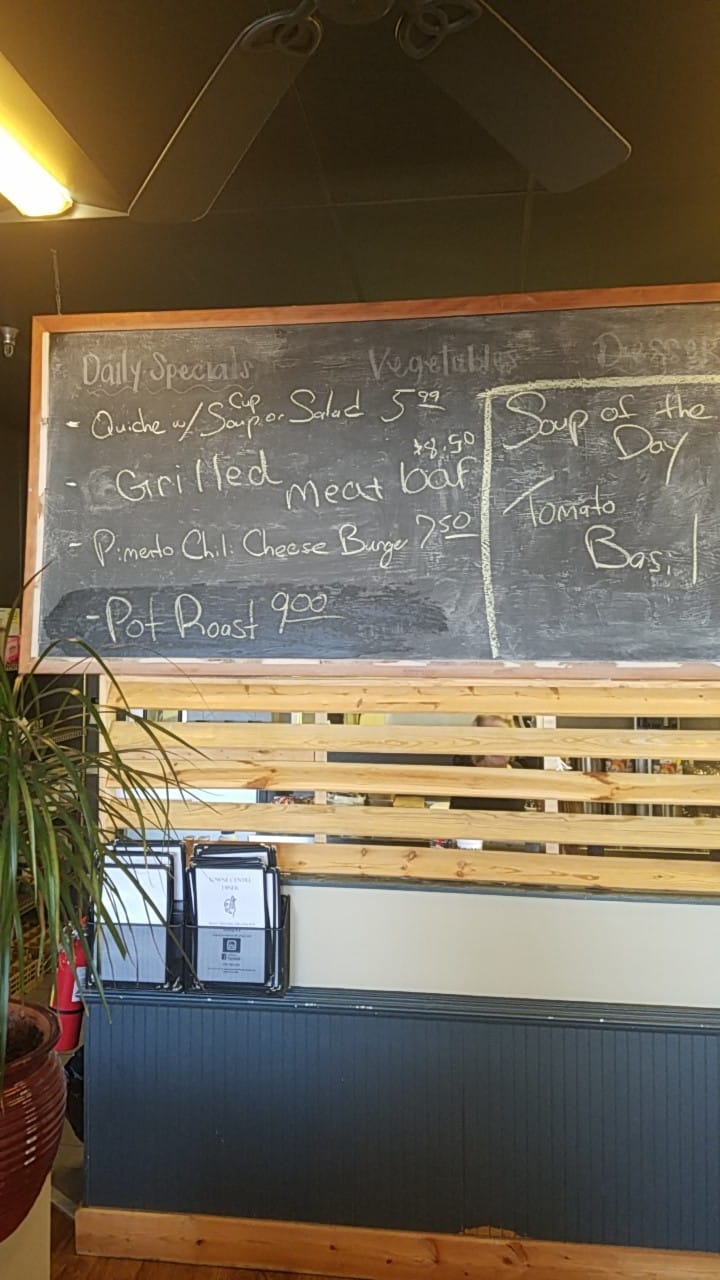 Daily Specials
Vegetables
- Quiche w/ Cup Soup or Salad 5.99
- Grilled meat loaf $8.50
- Pimento Chili Cheese Burge 7.50
- Pot Roast 9.00
Soup of the
Day
Tomato
Basil
TOWNE CENTRE
DINER